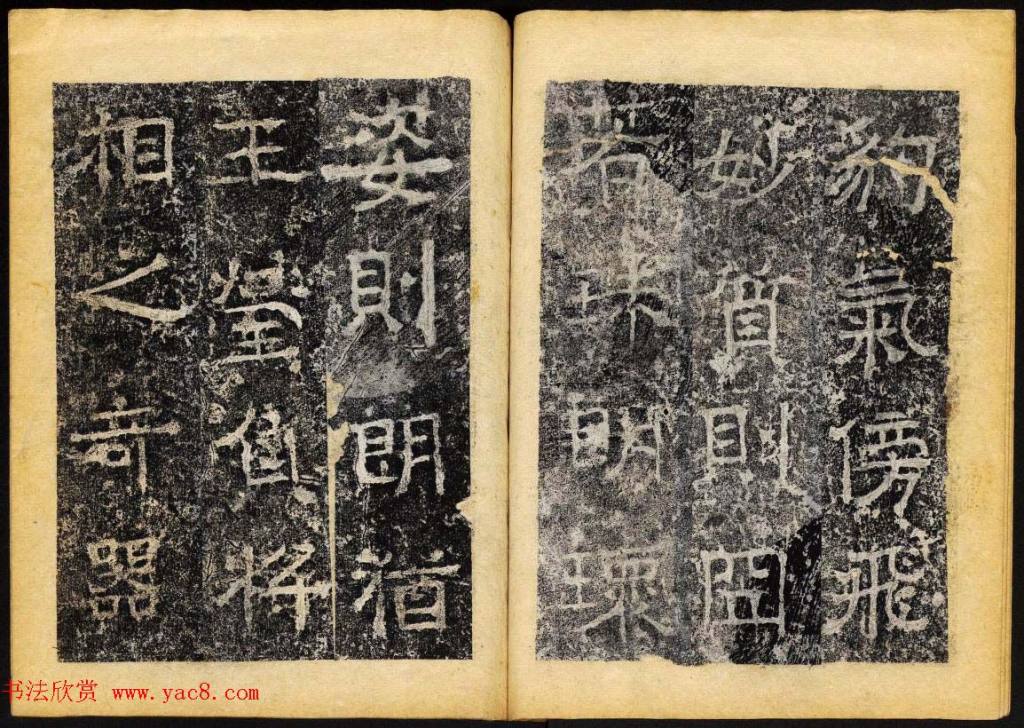 豹氣傍飛
妙質則囧
若珠明瓌
姿則朗猶
玉瑩將
相之奇器
书法欣赏 www.yac8.com